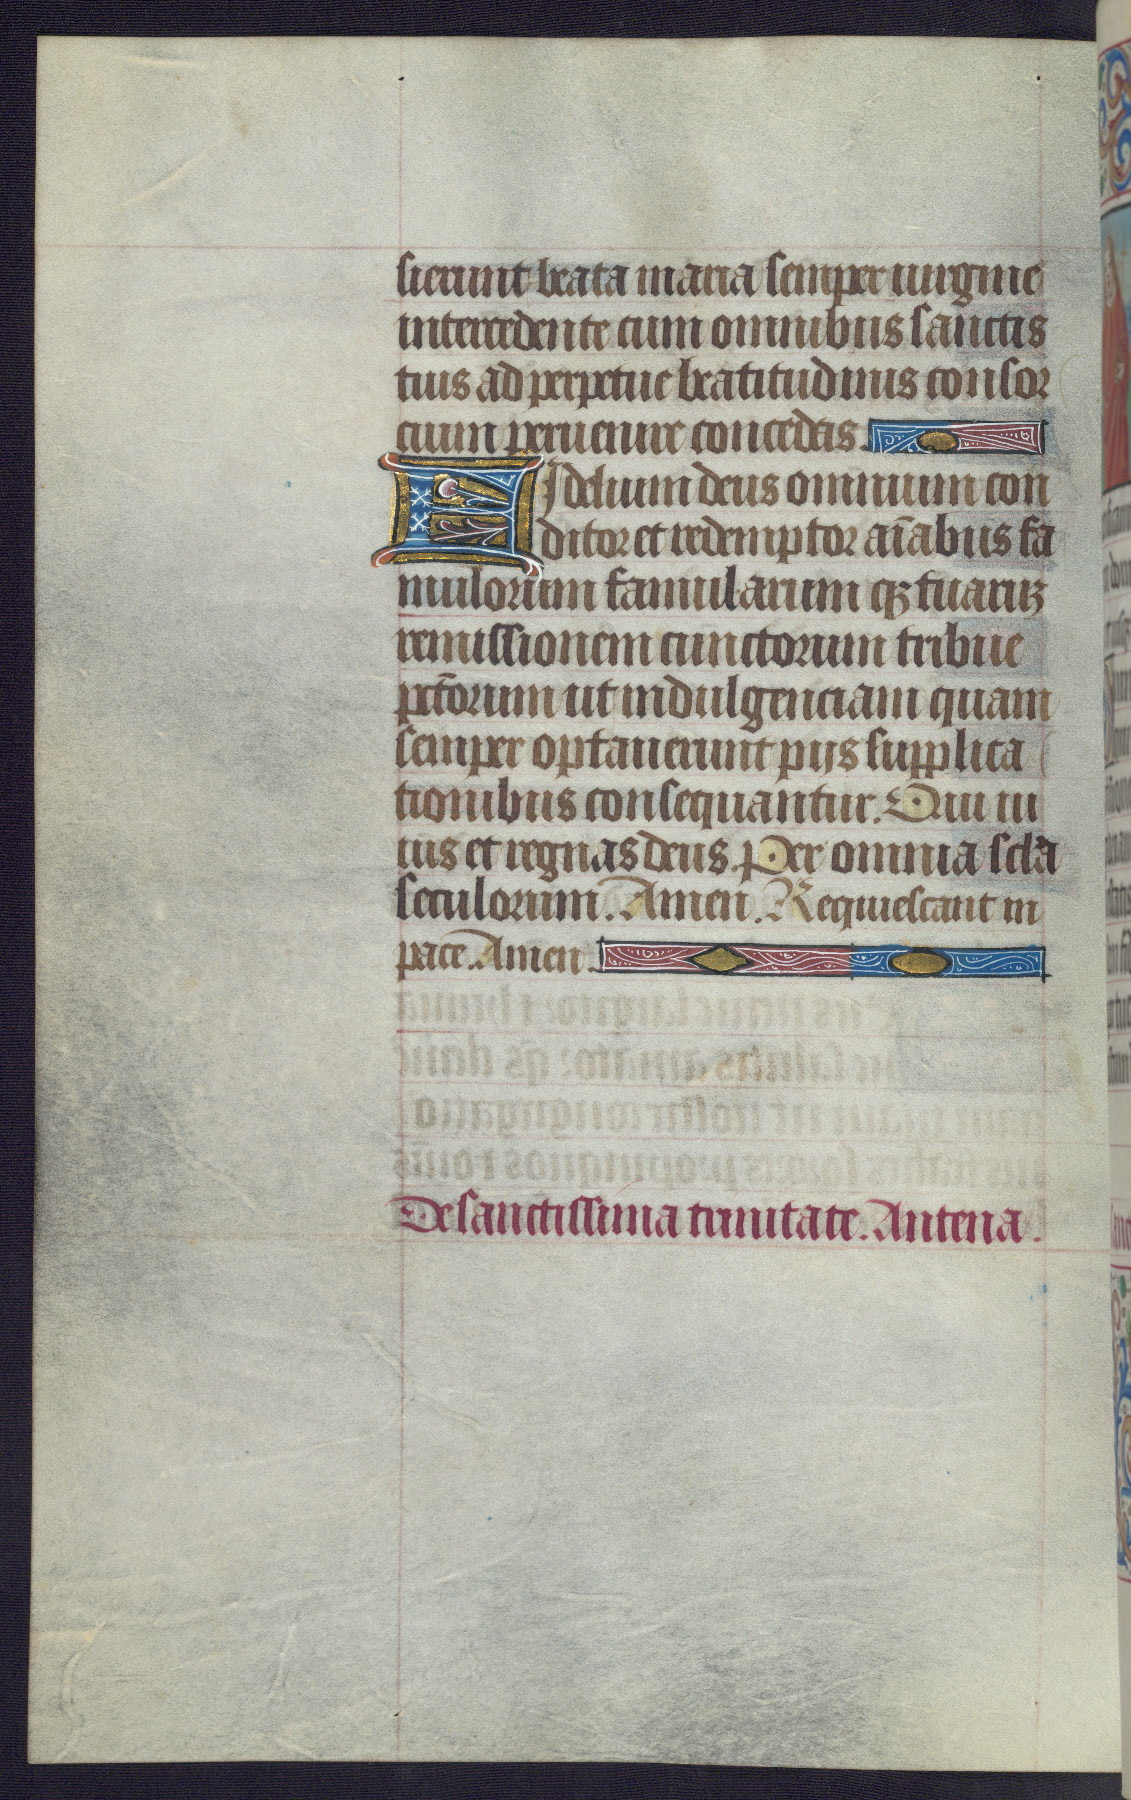 sierunt beata maria semper uirgine
intercedente cum omnibus sanctis
tuis ad perpetue beatitudinis consor
cium peruenire concedas.
Fidelium deus omnium con
ditor et redemptor aīabus fa
mulorum famularum qꝫ tuarꝫ
remissionem cunctorum tribue
pctōrum ut indulgenciam quam
semper optauerunt pijs supplica
tionibus consequantur. Qui ui
uis et regnas deus. Per omnia sclā
seculorum. Amen. Requiescant in
pace. Amen.
De sanctissima trinitate. Antena.